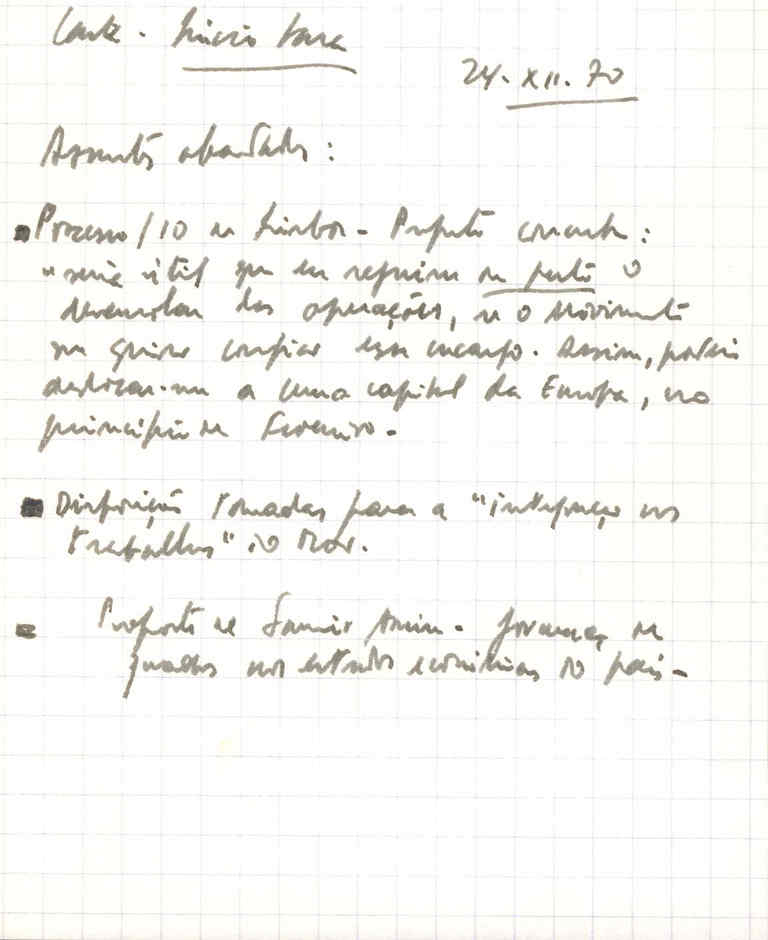 Carta - Lúcio Lara
24.XII.70
Assuntos abordados:
Processo/10 de Lisboa - Proposta concreta:
"seria útil que eu seguisse de perto o
desenrolar das operações, se o Movimento
me quiser confiar esse encargo. Assim, poderei
deslocar-me a uma capital da Europa, no
princípio de Fevereiro.
Disposições tomadas para a "integração nos
trabalhos" do Mov.
Proposta de Samir Amin. Formação de
quadros nos estudos económicos do país -